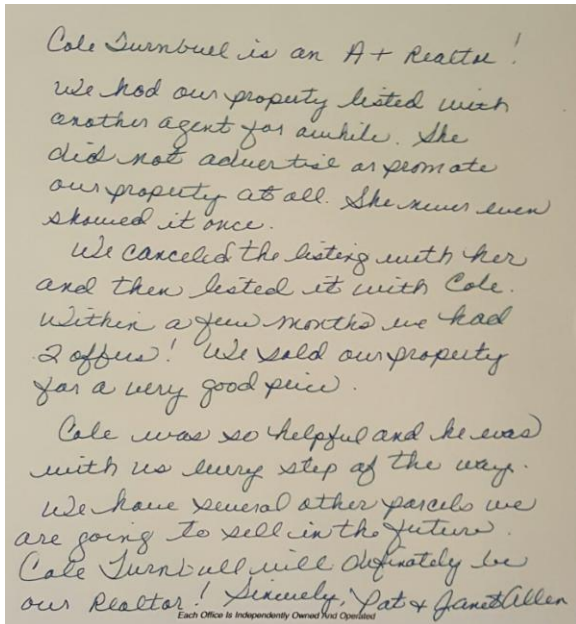 Cole Turnbull is an A+ Realtor!
We had our property listed with
another agent for awhile. She
did not advertise or promote
our property at all. She never even
showed it once.
We canceled the listing with her
and then listed it with Cole.
Within a few months we had
2 offers! We sold our property
for a very good price.
Cole was so helpful and he was
with us every step of the way.
We have several other parcels we
are going to sell in the future.
Cole Turnbull will definately be
our Realtor! Sincerely, Pat & Janet Allen
Each Office Is Independently Owned And Operated